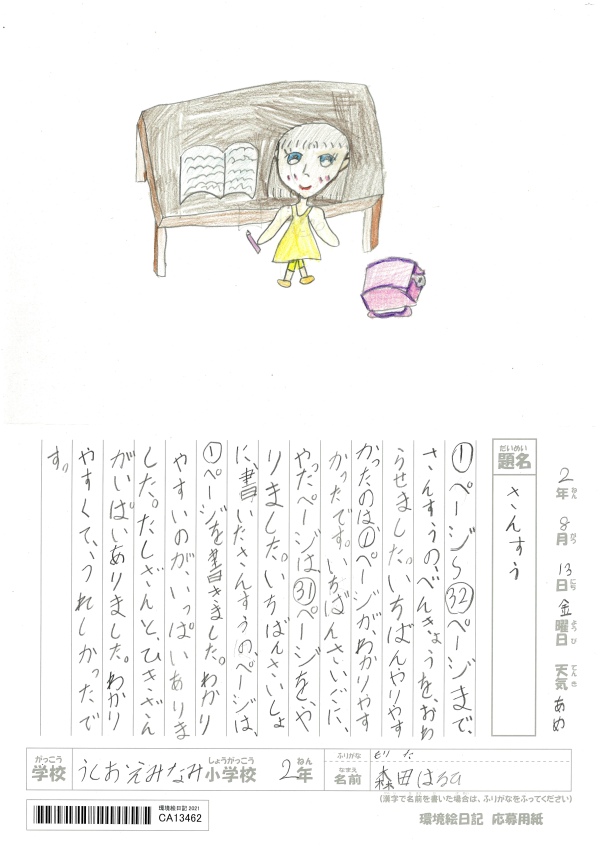 2年ねん8月がつ13日にち金曜日ようび 天気てんきあめ
題名だいめい
さんすう
①ページ〜㉜ページまで、
さんすうの、べんきょうを、おわ
らせました。いちばんやりやす
かったのは、①ページが、わかりやす
かったです。いちばんさいごに、
やったページは㉛ページを、や
りました。いちばんさいしょ
に、書いたさんすうの、ページは、
①ページを書きました。わかり
やすいのが、いっぱいありま
した。たしざんと、ひきざん
がいぱいありました。わかり
やすくて、うれしかったで
す。
がっこう
学校
うしおえみなみ小学校しょうがっこう 2年ねん
ふりがな もりた
名前なまえ 森田はるひ
(漢字で名前を書いた場合は、ふりがなをふってください)
環境絵日記 2021
CA13462
環境絵日記 応募用紙